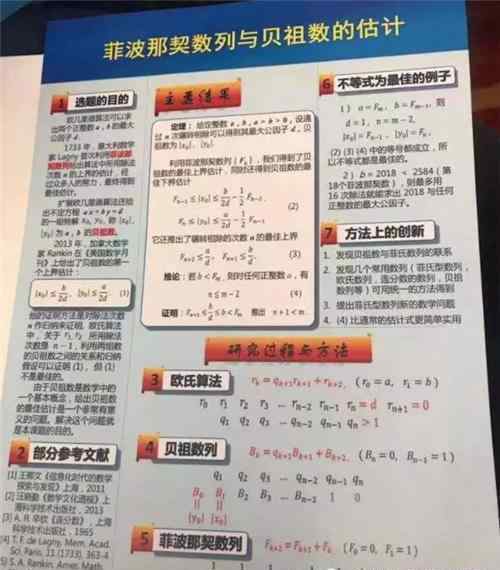 菲波那契数列与贝祖数的估计
1 选题的目的
欧几里得算法可以求
出两个正整数 a，b 的最大
公因子 d。
1733 年，意大利数学
家 Lagny 首次利用菲波那
契数列给出算法中所用除法
次数 n 的上界的估计，经
过众多人的努力，最终得到
最佳估计。
扩展欧几里得算法还给
出不定方程 ax+by=d
的一组特解 x₀, y₀, 称 |x₀|,
|y₀| 为 a, b 的贝祖数。
2013 年，加拿大数学
家 Rankin 在《美国数学月
刊》上给出了贝祖数的第一
个上界估计：
|x₀| ≤ b/2d, |y₀| ≤ a/2d. (1)
他的证明方法是对除法次数
n 作归纳来证明。欧氏算法
中，关于 r₁, r₂ 所用除法
次数是 n − 1，利用两组数
的贝祖数之间的关系和归纳
假设可以证明 (1)，但 (1)
不是最佳的。
由于贝祖数是数学中的
一个基本概念，给出贝祖数
的最佳估计是一个非常有意
义的问题。解决这个问题就
是本课题的目的。
2 部分参考文献
[1] 王那文《信息化时代的数学
探索与发现》上海，2011
[2] 汪晓勤《数学文化透视》上
海科学技术出版社，2013
[3] A. Я. 辛钦《连分数》，上海
科学技术出版社，1965
[4] T. F. de Lagny, Mem. Acad.
Sci. Paris, 11 (1733), 363-4
[5] S. A. Rankin, Amer. Math
主要结果
定理：给定整数 a, b, a > b > 0，设通
过 n 次辗转相除可以得到其最大公因子 d，贝
祖数为 |x₀|，|y₀|。
利用菲波那契数列 {Fₖ}，我们得到了贝
祖数的最佳上界估计，同时还得到贝祖数的最
佳下界估计
Fₙ₋₁ ≤ |x₀| ≤ b/2d − 1/2 Fₙ₋₂,
(2)
Fₙ ≤ |y₀| ≤ a/2d − 1/2 Fₙ₋₁.
它还推出了辗转相除的次数 n 的最佳上界
Fₙ₊₂ ≤ a/d, Fₙ₊₁ ≤ b/d. (3)
推论：若 b < Fₘ，则对任何正整数 a，有
n ≤ m − 2 (4)
证明：Fₙ₊₁ ≤ b/d ≤ b < Fₘ 推出 n + 1 < m.
6 不等式为最佳的例子
1) a = Fₘ，b = Fₘ₋₁，则
d = 1, n = m − 2,
|x₀| = Fₙ₋₁, |y₀| = Fₙ.
(2) (3) (4) 中的等号都成立，所
以不等式都是最佳的。
2) b = 2018 < 2584（第
18个菲波那契数），则最多用
16 次除法就能求出 2018 与任何
正整数的最大公因子。
7 方法上的创新
1. 发现贝祖数与菲氏数列的联系
2. 发现几个常用数列（菲氏型数列，
欧氏数列，连分数的数列，贝祖
数列等）可用统一的方法得到
3. 提出菲氏型数列新的数学问题
4. (4) 比通常的估计式更简单实用
研究过程与方法
3 欧氏算法 rₖ = qₖ₊₁rₖ₊₁ + rₖ₊₂. (r₀ = a, r₁ = b)
r₀ r₁ r₂ r₃ ... rₙ₋₂ rₙ₋₁ rₙ = d rₙ₊₁ = 0
q₁ q₂ q₃ ... qₙ₋₂ qₙ₋₁ qₙ > 1
4 贝祖数列 Bₖ = qₖ₊₁Bₖ₊₁ + Bₖ₊₂. (Bₙ = 0, Bₙ₋₁ = 1)
q₁ q₂ q₃ ... qₙ₋₂ qₙ₋₁ qₙ
B₀ B₁ B₂ B₃ ... Bₙ₋₂ 1 0
|| ||
|y₀| |x₀|
5 菲波那契数列 Fₖ₊₂ = Fₖ₊₁ + Fₖ (F₀ = 0, F₁ = 1)